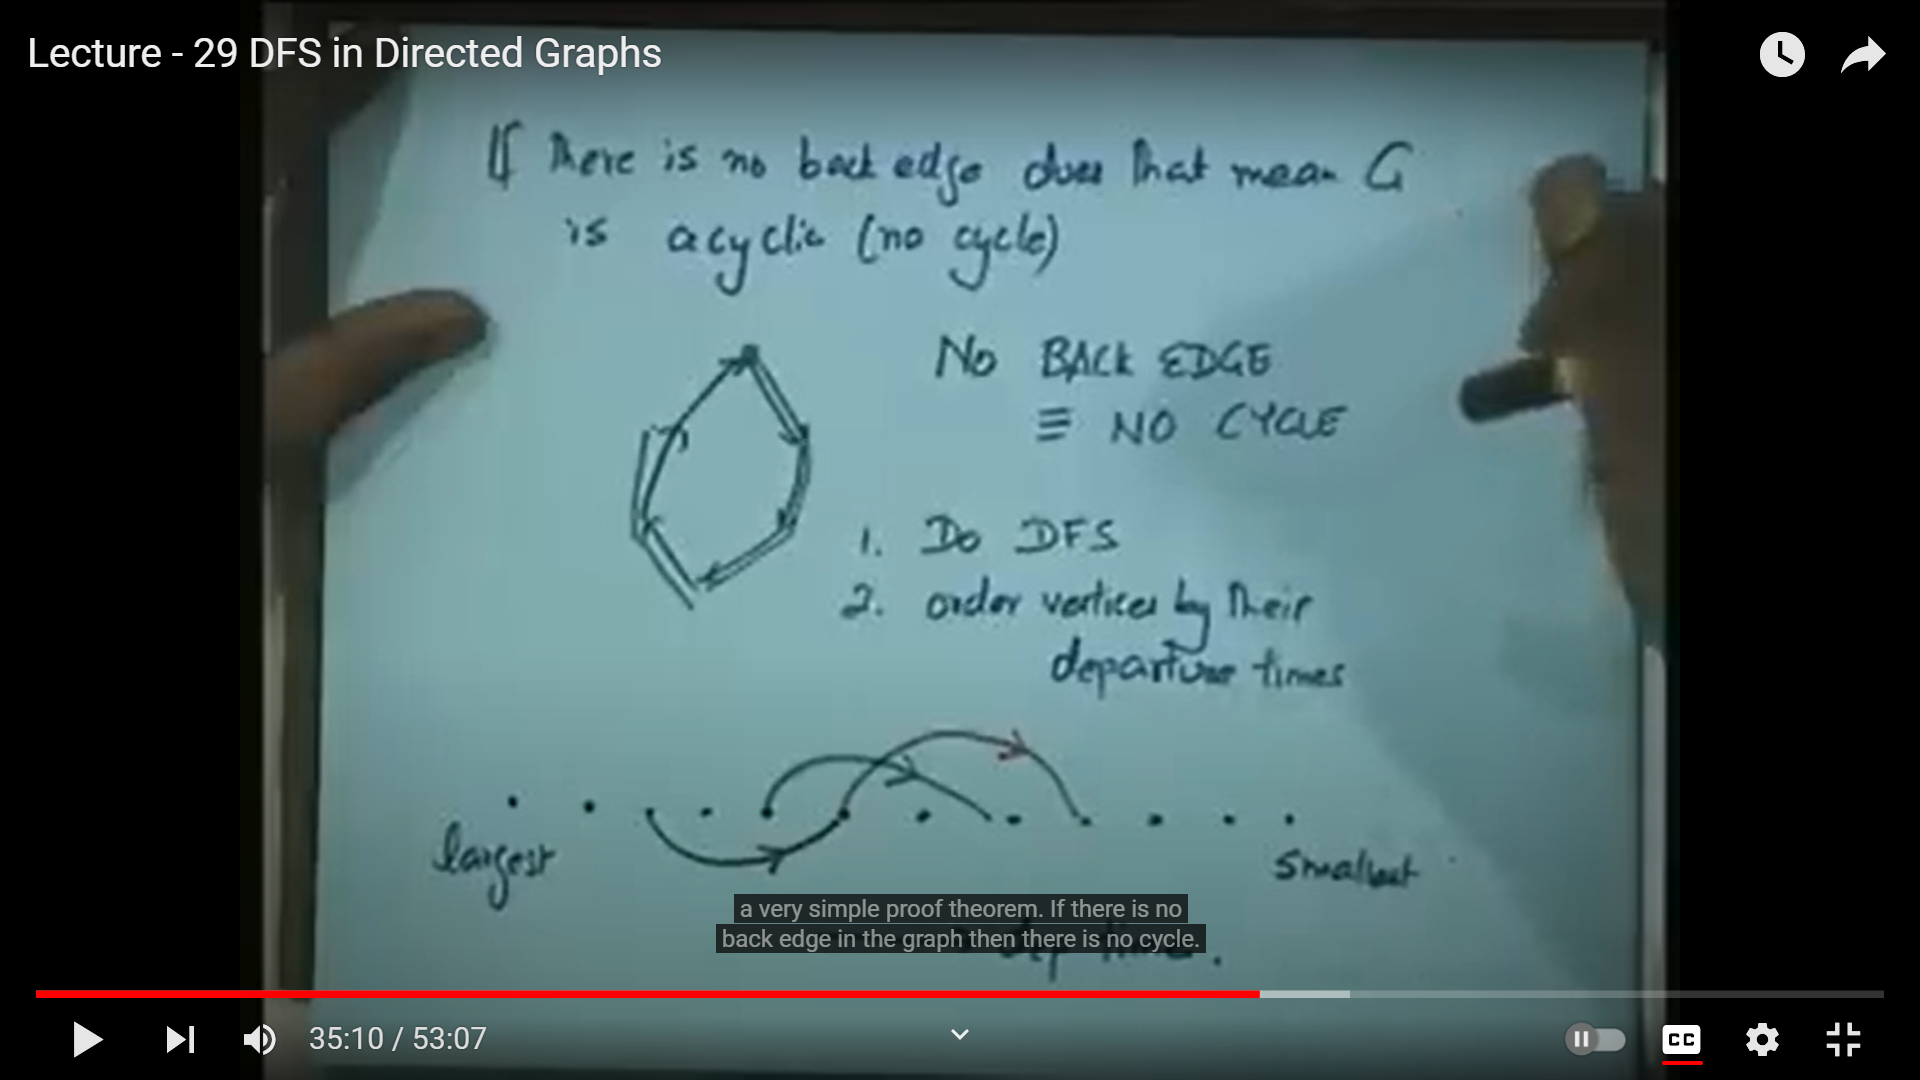 Lecture - 29 DFS in Directed Graphs
If there is no back edge does that mean G
is acyclic (no cycle)
No BACK EDGE
≡ NO CYCLE
1. Do DFS
2. order vertices by their
departure times
largest
smallest
a very simple proof theorem. If there is no
back edge in the graph then there is no cycle.
35:10 / 53:07
CC